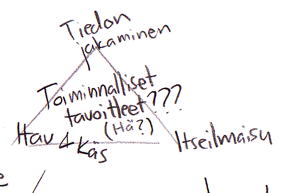 Tiedon
jakaminen
Toiminnalliset
tavoitteet???
(Hä?)
Hav & käs
Itseilmaisu